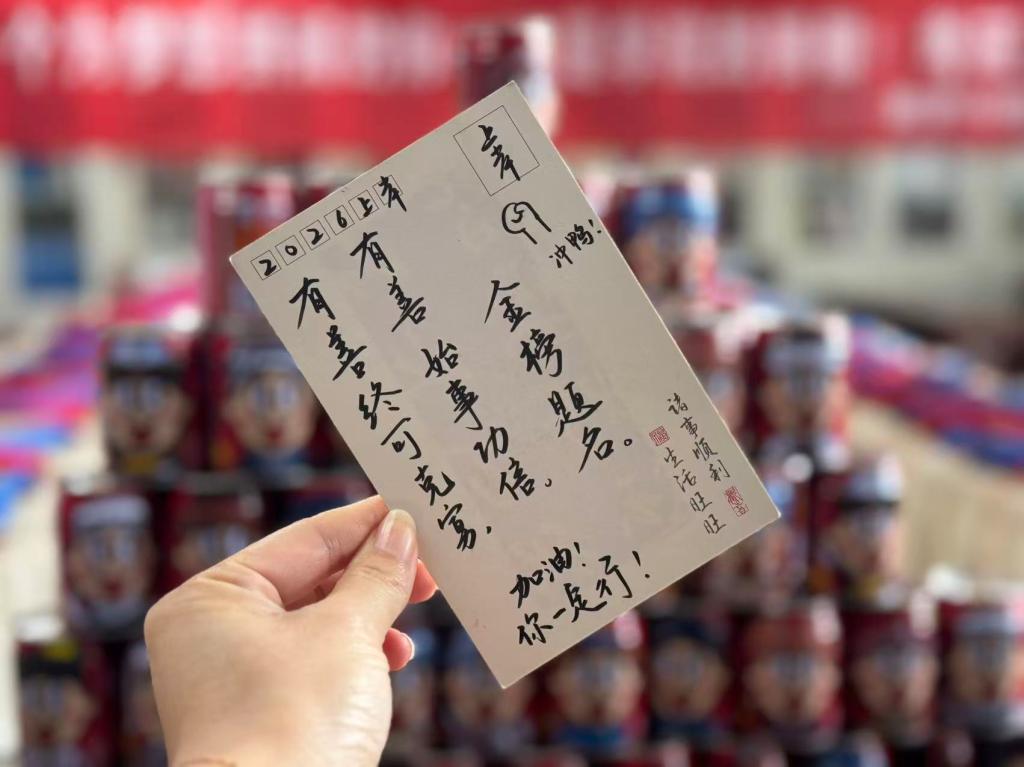 2026上岸
上岸
冲鸭!
金榜题名。
有善始事功倍。
有善终可克、
加油!
你一定行!
诸事顺利
生活旺旺